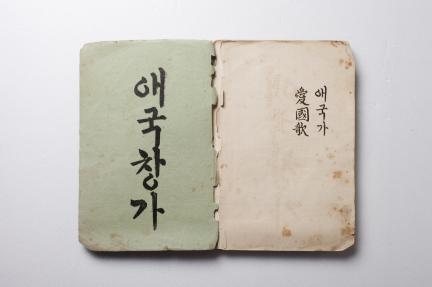 애국창가
애국가
愛國歌